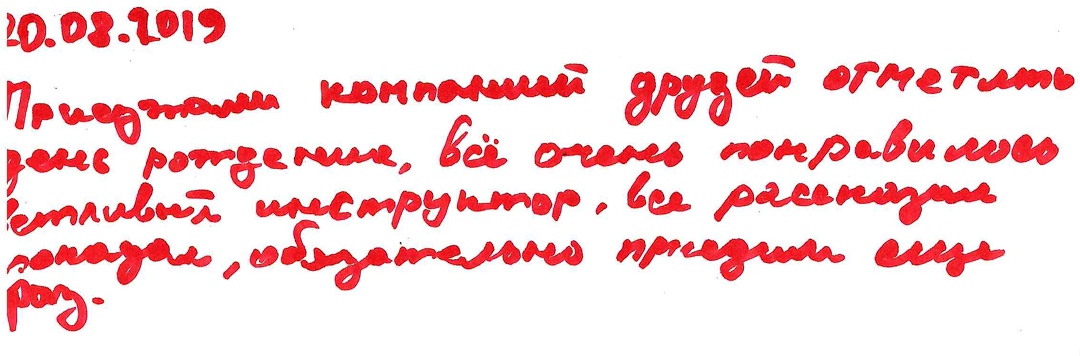 20.08.2019
Приезжали компанией друзей отметить
день рождение, всё очень понравилось
инструктор, все рассказал
показал, обязательно приедим ещё
раз.